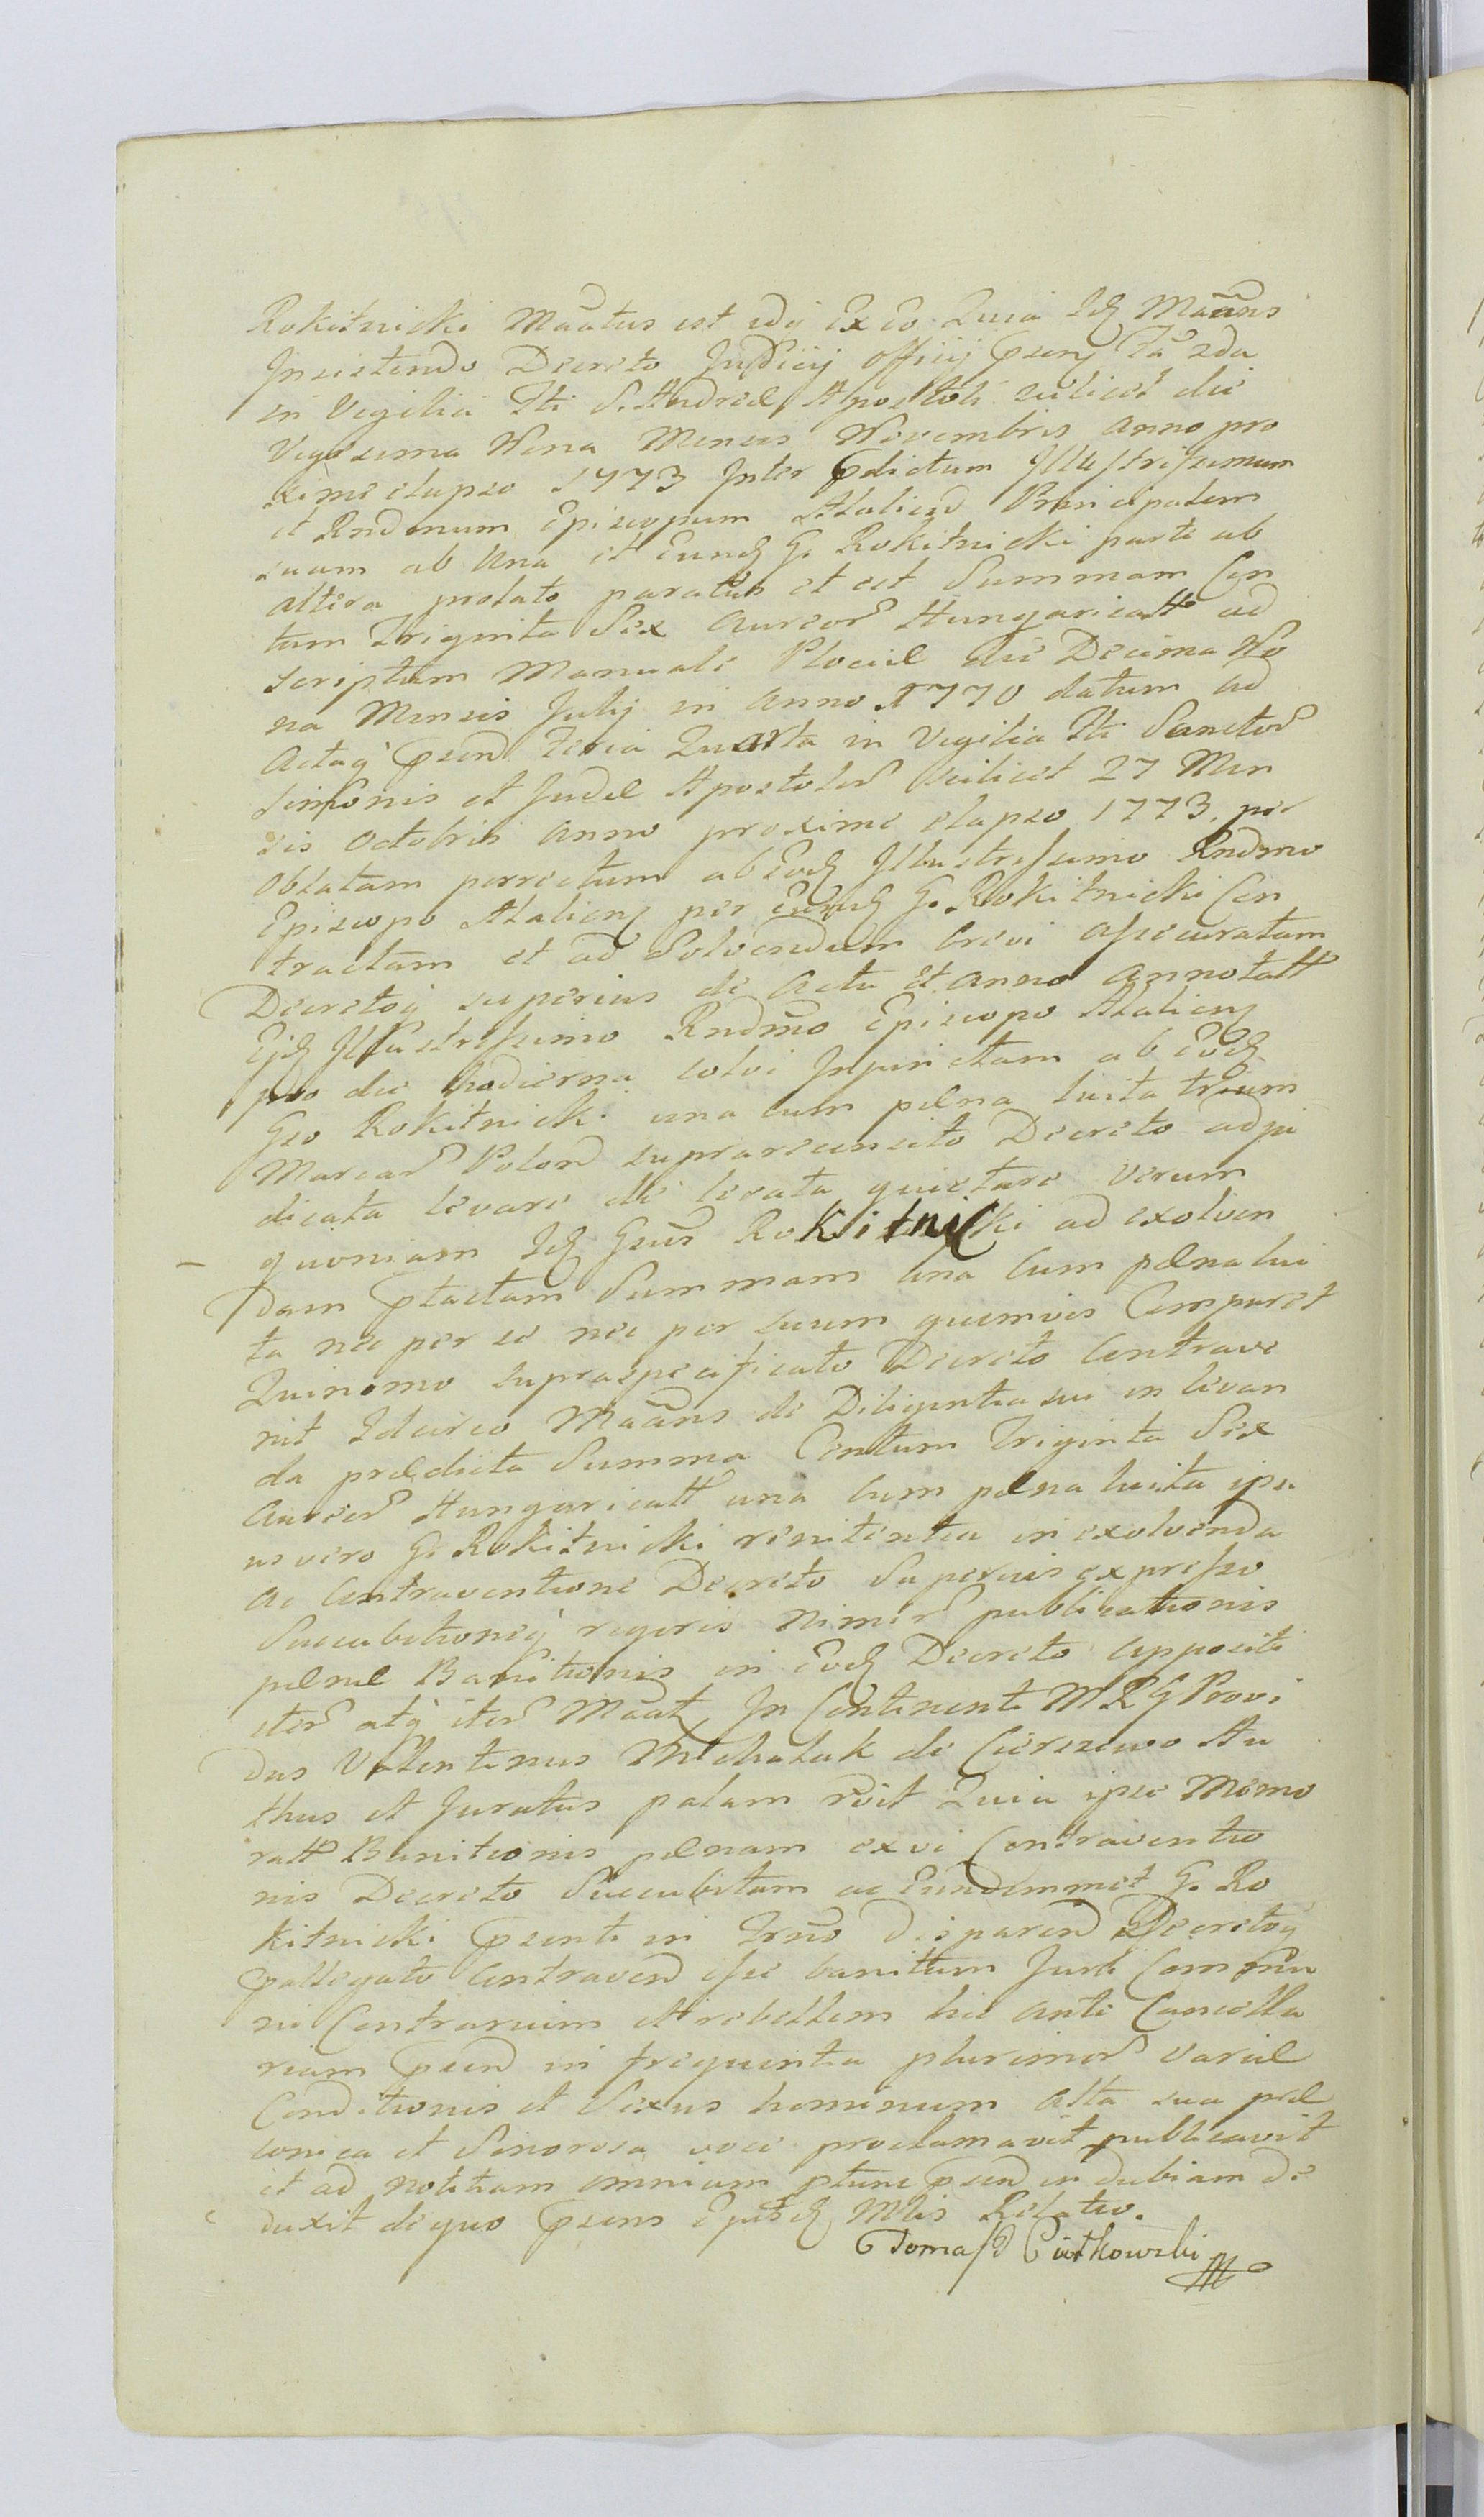 Rokitnicki Maãtus est idq Ex Eo Quia Idq Maãns
Insistendo Decreto Judicij Officij Psenq Fã 2da
in Vigilia Fti S. Andreæ Apostoli scilicet die
Vigesima Nona Mensis Novembris anno pro
xime elapso 1773 Inter Pdictum Illustrissimum
et Rndmum Episcopum Adaliend Principalem
suum ab Una et Eundq G. Rokitnicki parte ab
altera prolato paratus et est Summam Cen
tum Triginta Sex Aureor Hungaricall ad
scriptum Manuale Plociæ die Decima No
na Mensis Julij in Anno 1770 datum ad
Actaq Psend Feria Quarta in Vigilia Fti Sanctor
Simonis et Judæ Apostolor scilicet 27 Men
sis Octobris anno proxime elapso 1773, per
Oblatam porrectum ab Eodq Illustrissimo Rndmo
Episcopo Adalienq per Eundq G. Rokitnicki Con
tractam et ad Solvendum brevi assecuratam
Decretoq superius de Actu et anno annotatt
Ejdq Illustrissimo Rndmo Episcopo Adalienq
pro die hodierna solvi Injunctam ab Eodq
Gso Rokitnicki una cum pæna luita trium
Marcar Polond suprarecensito Decreto adju
dicata levare de levata quietare verum
quoniam Idq Gsus Rokitnicki ad exolven
dam Ptactam Summam una cum pæna lui
ta nec per se nec per suum quemvis Comparet
Quinomo supraspecificato Decreto Contrave
nit Idcirco Maãns de Diligentia sui in levan
da prædicta Summa Centum Triginta Sex
Aureor Hungaricall una cum pæna luita ipsi
us vero G. Rokitnicki renitentia in exolvenda
ac Contraventione Decreto Superius expresso
Succubitioneq rigoris nimir publicationis
pænæ Banitionis in Eodq Decreto appositi
iter atq iter Maãt, In Continenti M R G Provi
dus Valentinus Michalak de Cierszewo Au
thus et Juratus palam rdit Quia ipse Memo
ratt Banitionis pænam ex vi Contraventio
nis Decreto Succubitam ac Eundemmet G. Ro
kitnicki Psenti in Trno disparend Decretoq
Pallegato Contravend esse banitum Juri Commu
ni Contrarium et rebellem hic ante Cancella
riam Psend in frequentia plurimor variæ
Conditionis et Sexus hominum alta sua præ
conica et Sonorosa voce proclamavit publicavit
et ad notitiam omnium ptune Psend in dubiam de
duxit de quo Psens Ejusdq Mlis Relatio.
Tomasz Piotkowski